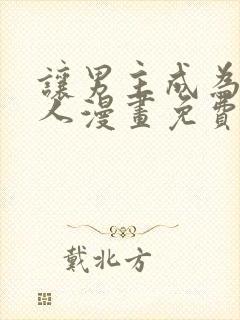 讓男主成為
人漫畫免費
戴北方